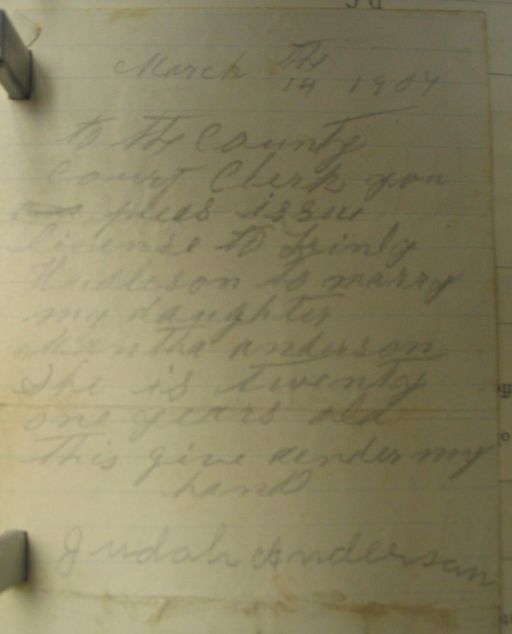 March 14 th 1904
to the County
Court Clerk you
pleas issue
license to
Hudleson to marry
my daughter
Mantha anderson
She is twenty
one years old
This give under my
hand
Judah Anderson